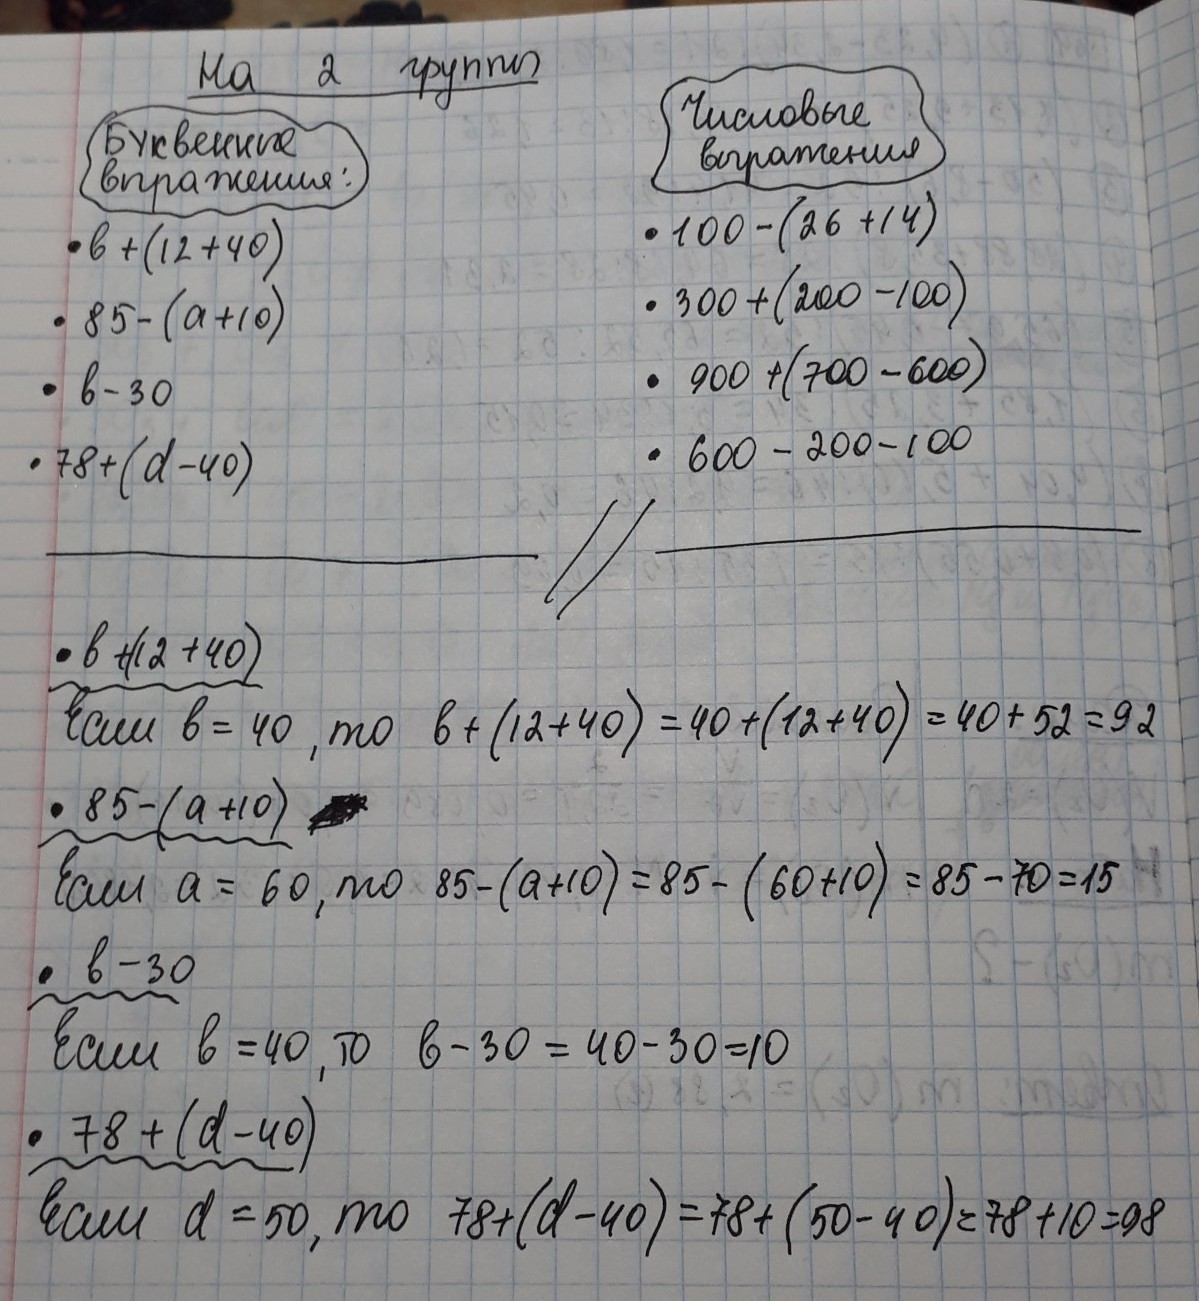 На 2 группы
Буквенные
выражения:
• в + (12 + 40)
• 85 - (a + 10)
• в - 30
• 78 + (d - 40)
Числовые
выражения
• 100 - (26 + 14)
• 300 + (200 - 100)
• 900 + (700 - 600)
• 600 - 200 - 100
• в + (12 + 40)
Если в = 40, то в + (12 + 40) = 40 + (12 + 40) = 40 + 52 = 92
• 85 - (a + 10)
Если a = 60, то 85 - (a + 10) = 85 - (60 + 10) = 85 - 70 = 15
• в - 30
Если в = 40, то в - 30 = 40 - 30 = 10
• 78 + (d - 40)
Если d = 50, то 78 + (d - 40) = 78 + (50 - 40) = 78 + 10 = 98